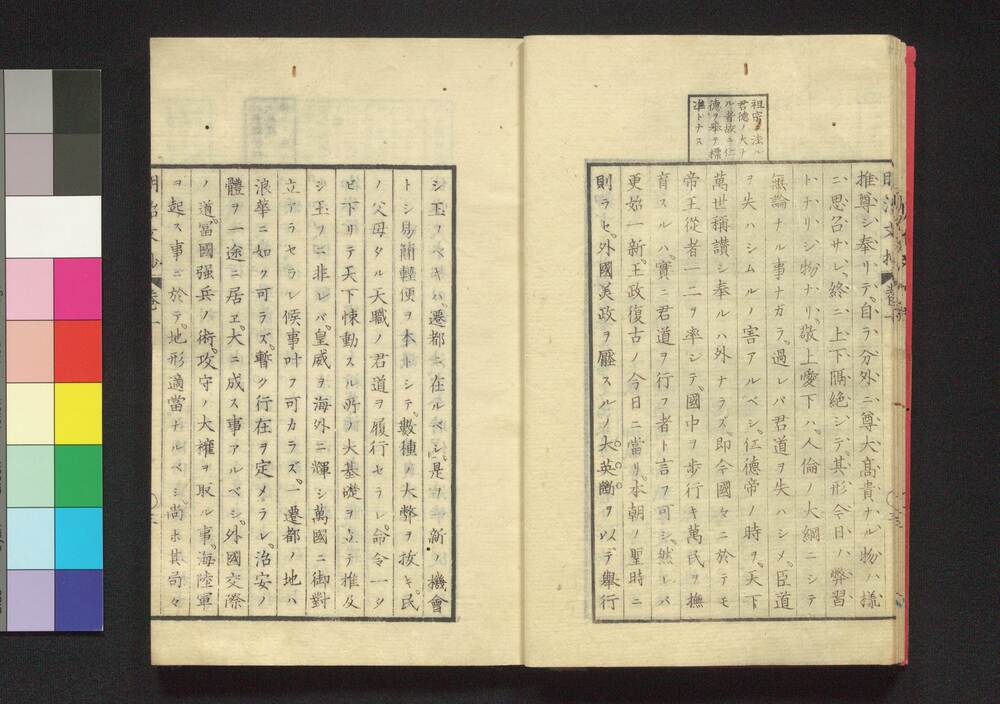 祖宗ノ法ル
君德ノ大ナ
ル者故ニ仁
德ヲ奉テ標
準トナス
推尊シ奉リテ、自ラ分外ニ尊大髙貴ナル物ハ様
ニ思召サレ、終ニ上下隔絶シテ、其形今日ノ弊習
トナリシ物ナリ、敬上愛下ハ、人倫ノ大綱ニシテ
無論ナル事ナガラ、過レバ君道ヲ失ハシメ、臣道
ヲ失ハシムルノ害アルベシ、仁德帝ノ時ヲ、天下
萬世稱讃シ奉ルハ外ナラズ、即今國々ニ於テモ
帝王從者一二ヲ率シテ、國中ヲ歩行キ萬民ヲ撫
育スルハ、實ニ君道ヲ行フ者ト言フ可シ、然レバ
更始一新、王政復古ノ今日ニ當リ、本朝ノ聖時ニ
則ラセ、外國美政ヲ壓スルノ大英斷ヲ以テ舉行
シ玉フベキハ、遷都ニ在ルベシ、是ヲ一新ノ機會
トシ易簡輕便ヲ本トシテ、數種ノ大弊ヲ抜キ、民
ノ父母タル天職ノ君道ヲ履行セラレ、命令一タ
ビ下リテ天下悚動スル所ノ大基礎ヲ立テ推及
シ玉フニ非レバ、皇威ヲ海外ニ輝シ萬國ニ御對
立アラセラレ候事叶フ可カラズ、一遷都ノ地ハ
浪華ニ如ク可ラズ、暫ク行在ヲ定メラレ、治安ノ
體ヲ一途ニ居ヱ、大ニ成ス事アルベシ、外國交際
ノ道、富國强兵ノ術、攻守ノ大權ヲ取ル事、海陸軍
ヲ起ス事ニ於テ、地形適當ナルベシ、尚ホ其局々